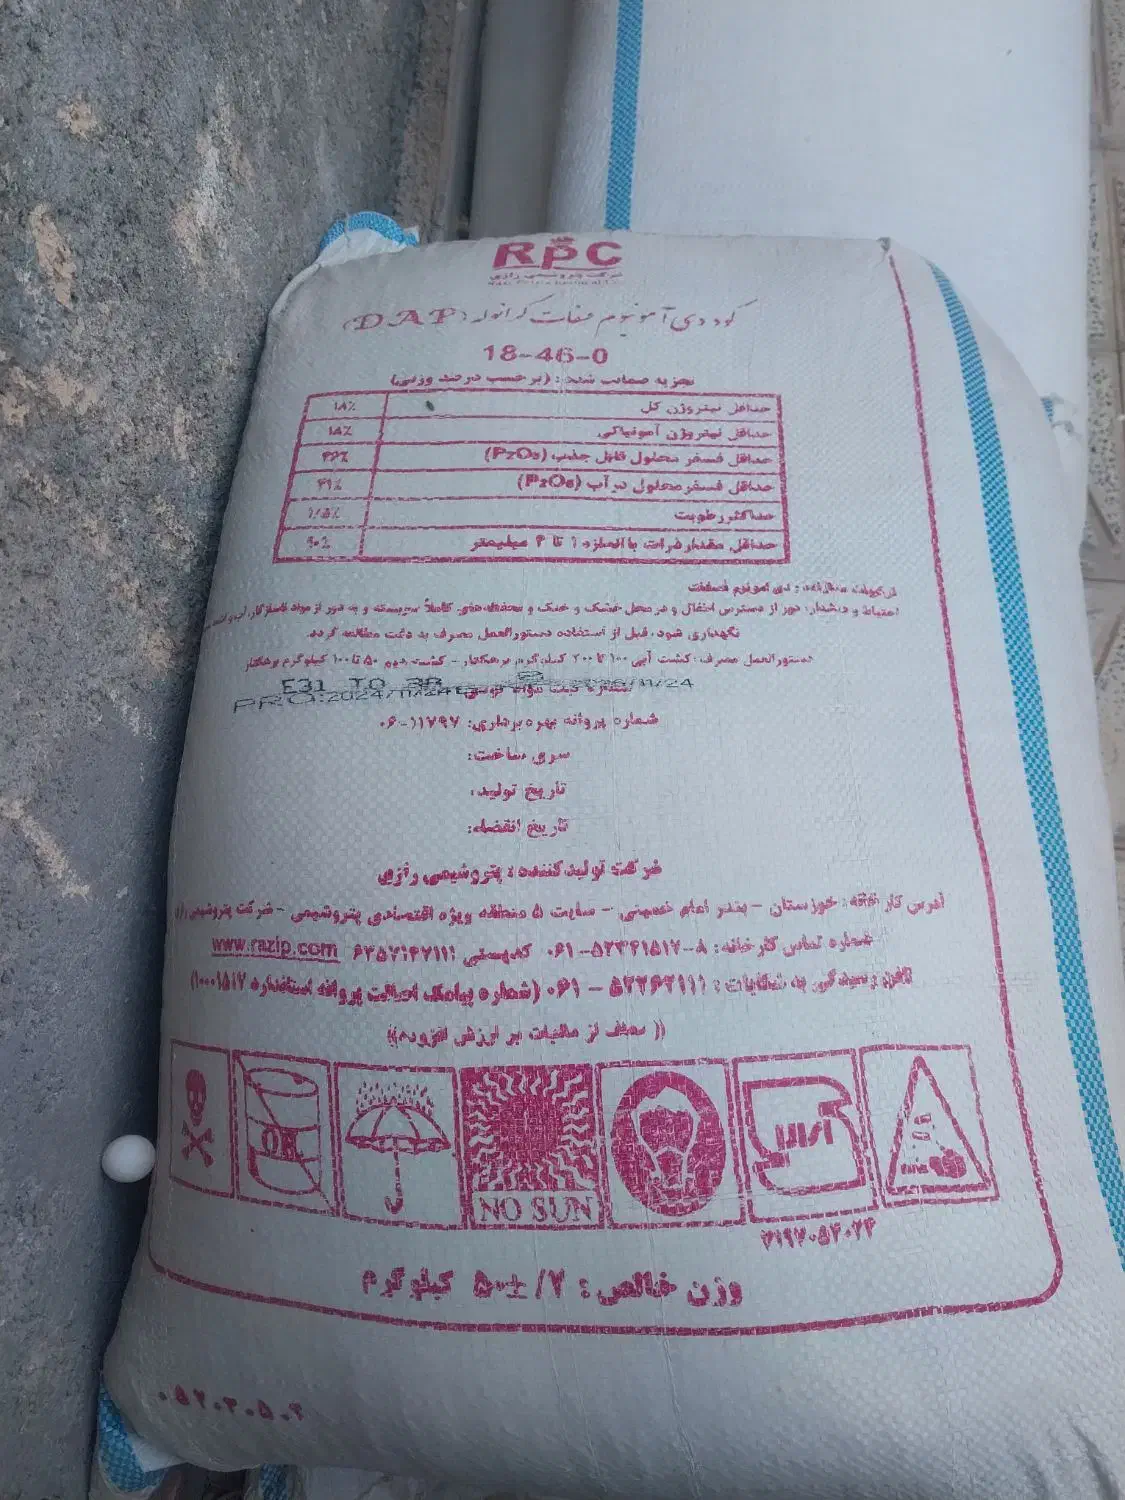 RPC
شرکت پتروشیمی رازی
کود دی آمونیوم فسفات گرانوله (DAP)
18-46-0
تجزیه ضمانت شده : (بر حسب درصد وزنی)
حداقل نیتروژن کل ۱۸٪
حداقل نیتروژن آمونیاکی ۱۸٪
حداقل فسفر محلول قابل جذب (P2O5) ۴۶٪
حداقل فسفر محلول در آب (P2O5) ۴۱٪
حداکثر رطوبت ۱/۵٪
حداقل مقدار ذرات با اندازه ۱ تا ۴ میلیمتر ۹۰٪
ترکیبات سازنده : دی آمونیوم فسفات
احتیاط و هشدار: دور از دسترس اطفال و در محل خشک و خنک و محفظه های کاملاً سربسته و به دور از مواد ناسازگار، آب و
نگهداری شود، قبل از استفاده دستورالعمل مصرف به دقت مطالعه گردد.
دستورالعمل مصرف: کشت آبی ۱۰۰ تا ۲۰۰ کیلوگرم در هکتار - کشت دیم ۵۰ تا ۱۰۰ کیلوگرم در هکتار
شماره ثبت مواد کودی:
E31 TO 3B
PRO:2024/11/24
شماره پروانه بهره برداری: ۱۱۷۹۷-۰۶
سری ساخت:
تاریخ تولید:
تاریخ انقضاء:
شرکت تولید کننده : پتروشیمی رازی
آدرس کارخانه: خوزستان - بندر امام خمینی - سایت ۵ منطقه ویژه اقتصادی پتروشیمی - شرکت پتروشیمی رازی
شماره تماس کارخانه: ۸-۵۲۲۶۱۵۱۷-۰۶۱ کدپستی ۶۳۵۷۱۶۷۱۱۱ www.razip.com
تلفن رسیدگی به شکایات : ۵۲۲۶۲۱۱۱ - ۰۶۱ (شماره پیامک اصالت پروانه استاندارد ۱۰۰۰۱۵۱۷)
(( معاف از مالیات بر ارزش افزوده ))
OK
NO SUN
۲۱۹۲۰۵۴۰۲۴
وزن خالص : ۲٪±۵۰ کیلوگرم
۰۵۲۰۳۰۵۰۲